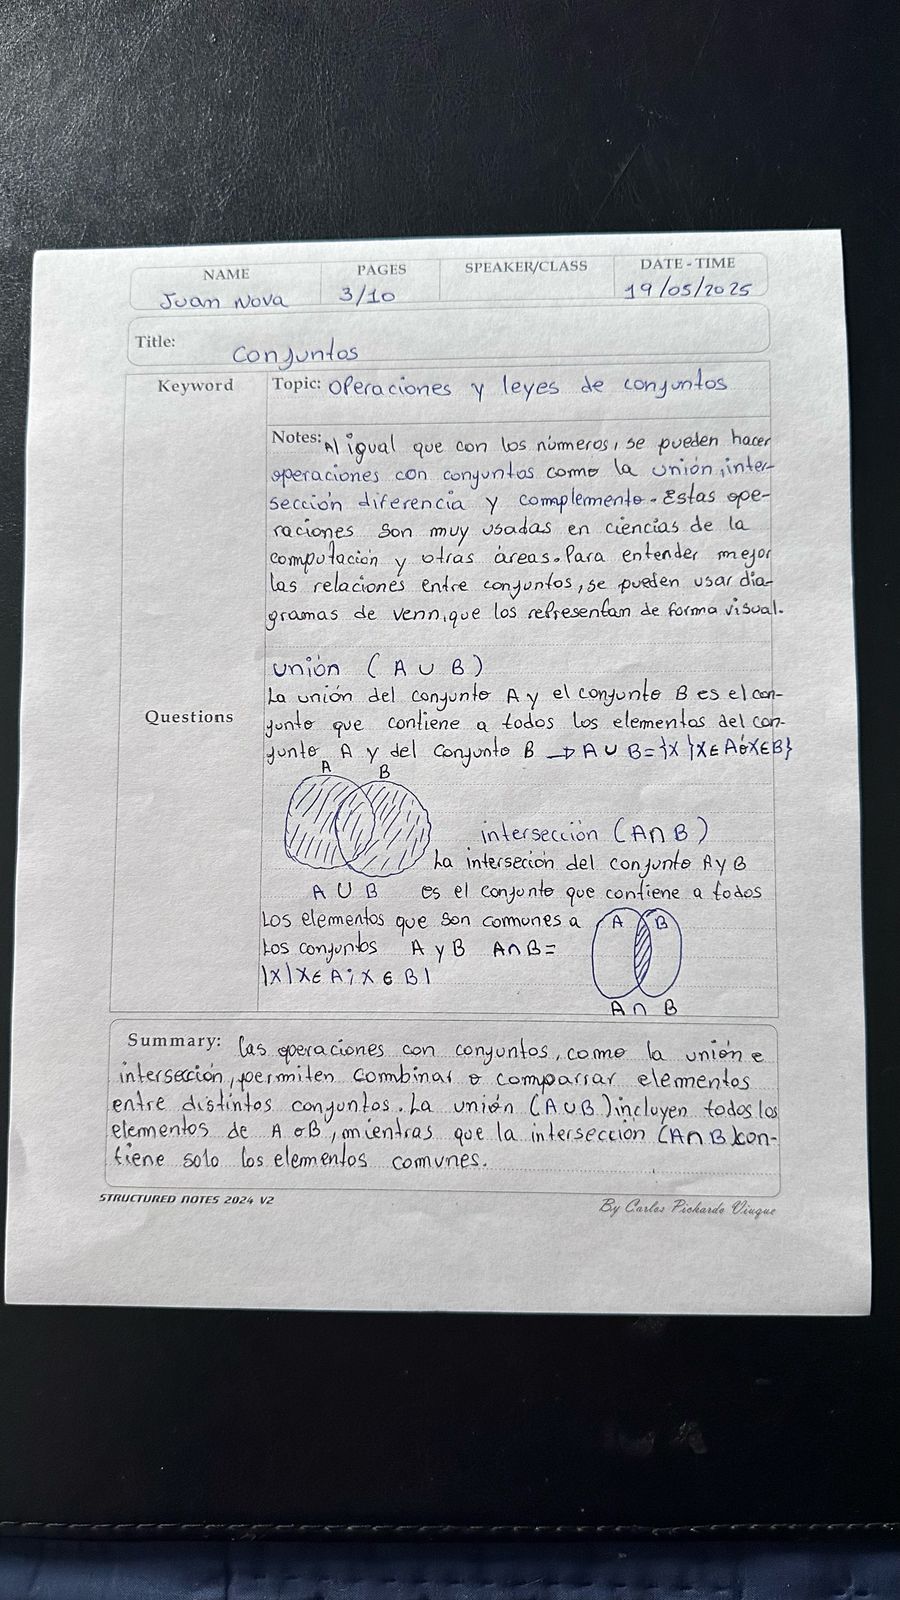 NAME PAGES SPEAKER/CLASS DATE-TIME
Juan Nova 3/10 19/05/2025
Title: Conjuntos
Keyword
Topic: Operaciones y leyes de conjuntos
Notes: Al igual que con los números, se pueden hacer
operaciones con conjuntos como la unión, inter-
sección diferencia y complemento. Estas ope-
raciones son muy usadas en ciencias de la
computación y otras áreas. Para entender mejor
las relaciones entre conjuntos, se pueden usar dia-
gramas de venn, que los representan de forma visual.
unión (A ∪ B)
La unión del conjunto A y el conjunto B es el con-
Questions
junto que contiene a todos los elementos del con-
junto A y del conjunto B → A ∪ B = {x | x ∈ A ó x ∈ B}
A B
A ∪ B
intersección (A ∩ B)
La interseción del conjunto A y B
es el conjunto que contiene a todos
Los elementos que son comunes a
Los conjuntos A y B A ∩ B =
|x | x ∈ A ; x ∈ B|
A B
A ∩ B
Summary: Las operaciones con conjuntos, como la unión e
intersección, permiten combinar o comparrar elementos
entre distintos conjuntos. La unión (A ∪ B) incluyen todos los
elementos de A o B, mientras que la intersección (A ∩ B) con-
tiene solo los elementos comunes.
STRUCTURED NOTES 2024 V2
By Carlos Pichardo Viuque